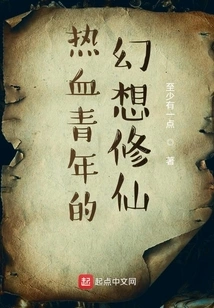 热血青年的
幻想修仙
至少有一点 著
起点 起点中文网